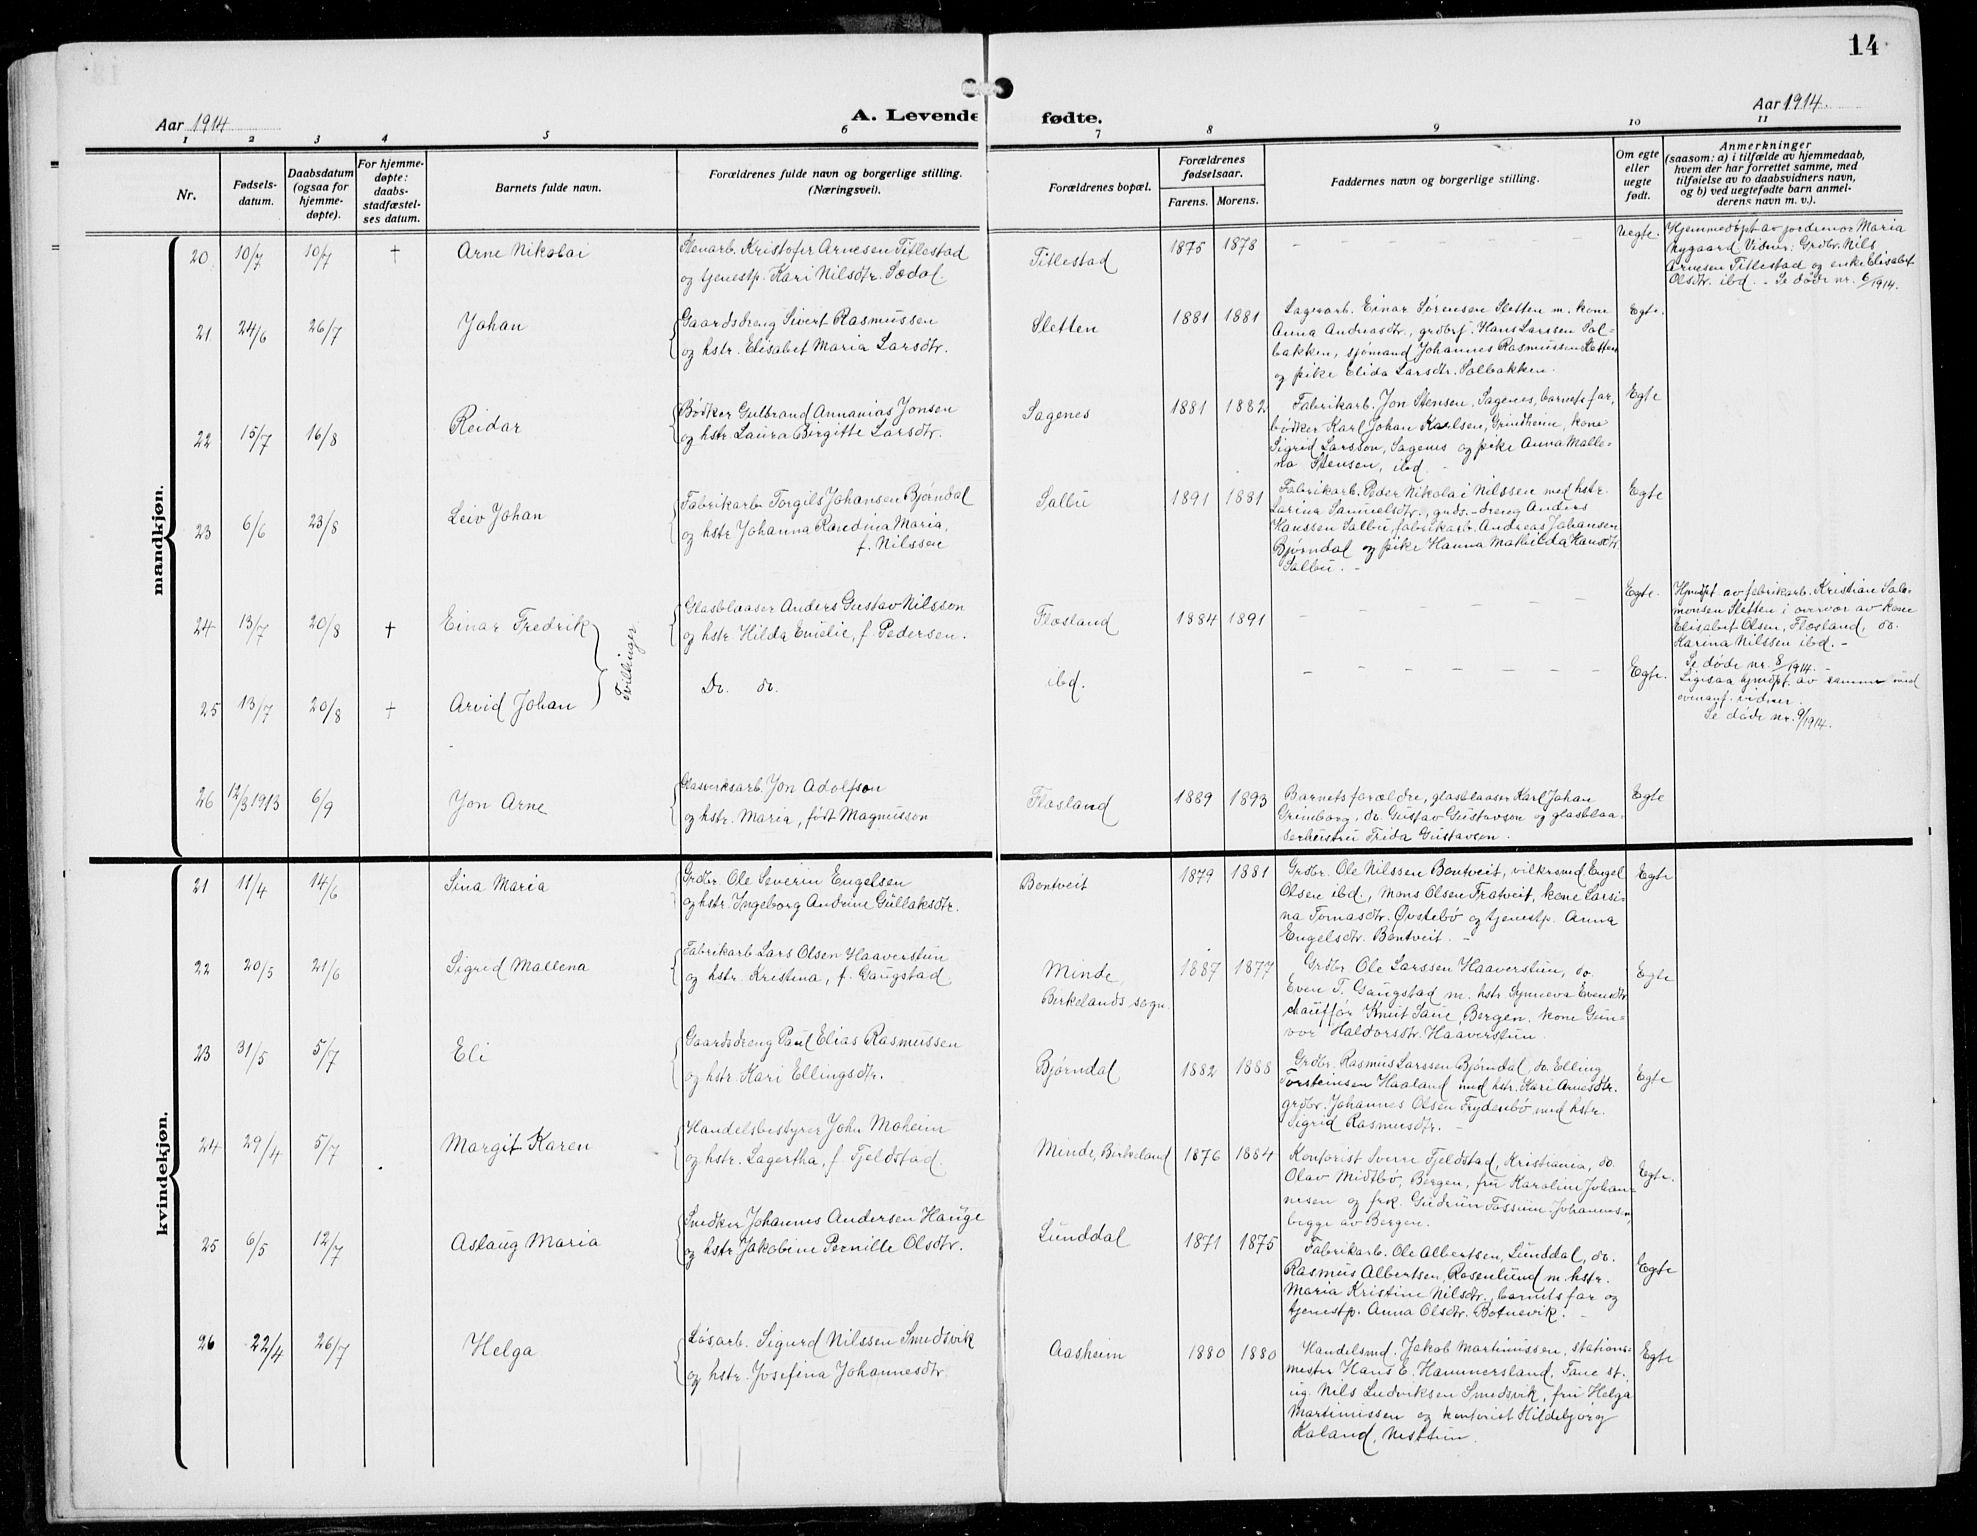 14
Aar 1914
A. Levende fødte.
Aar 1914.
1 2 3 4 5 6 7 8 9 10 11
Nr.
Fødsels-
datum.
Daabsdatum
(ogsaa for
hjemme-
døpte).
For hjemme-
døpte:
daabs-
stadfæstel-
ses datum.
Barnets fulde navn.
Forældrenes fulde navn og borgerlige stilling.
(Næringsvei).
Forældrenes bopæl.
Forældrenes
fødselsaar.
Farens. Morens.
Faddernes navn og borgerlige stilling.
Om egte
eller
uegte
født.
Anmerkninger
(saasom: a) i tilfælde av hjemmedaab,
hvem der har forrettet samme, med
tilføielse av to daabsvidners navn,
og b) ved uegtefødte barn anmel-
derens navn m. v.).
mandkjøn.
20 10/7 10/7 † Arne Nikolai
Stenarb. Kristofer Arnesen Titlestad
og tjenestp. Kari Nilsdtr. Sædal.
Titlestad 1875 1878 – – – – – – Uegte.
Hjemmedøpt av jordemor Maria
Nygaard. Vidner: Grdbr. Nils
Arnesen Titlestad og enke Elisabet
Olsdtr. ibd. – Se døde nr. 6/1914.
21 24/6 26/7 Johan
Gaardsdreng Sivert Rasmussen
og hstr. Elisabet Maria Larsdtr.
Sletten 1881 1881
Sagarb. Einar Sørensen Sletten m. kone
Anna Andreasdtr., grdbrf. Hans Larssen Sol-
bakken, sjømand Johannes Rasmussen Sletten
og pike Elida Larsdtr. Solbakken.
Egte.
22 15/7 16/8 Reidar
Bødker Gulbrand Annanias Jonsen
og hstr. Laura Birgitte Larsdtr.
Sagenes 1881 1882
Fabrikarb. Jon Stensen, Sagenes, barnets far,
bødker Karl Johan Karlsen, Grindheim, kone
Sigrid Larsson, Sagenes og pike Anna Malle-
na Stensen, ibd. –
Egte
23 6/6 23/8 Leiv Johan
Fabrikarb. Torgils Johansen Bjørndal
og hstr. Johanna Randina Maria,
f. Nilssen
Salbu 1891 1881
Fabrikarb. Peder Nikolai Nilssen med hstr.
Larina Samuelsdtr., grds.-dreng Anders
Hanssen Salbu, fabrikarb. Andreas Johansen
Bjørndal og pike Hanna Mathilda Hansdtr.
Salbu. –
Egte
24 13/7 20/8 † Einar Fredrik
Tvillinger
Glasblaaser Anders Gustav Nilsson
og hstr. Hilda Emelie, f. Pedersen.
Flæsland 1884 1891 – – – – – – Egte.
Hjmdpt av fabrikarb. Kristian Salo-
monsen Sletten i overvær av kone
Elisabet Olsen, Flæsland, do.
Karina Nilssen ibd. –
Se døde nr. 8/1914. –
25 13/7 20/8 † Arvid Johan
Do. do.
ibd. – – – – – – – Egte.
Ligesaa hjmdpt. av samme med
ovenanf. vidner.
Se døde nr. 9/1914.
26 12/3 1913 6/9 Jon Arne
Glasverksarb. Jon Adolfson
og hstr. Maria, født Magnusson
Flæsland 1889 1893
Barnets forældre, glasblaaser Karl Johan
Grimborg, do. Gustav Gustavson og glasblaa-
serhustru Frida Gustavson.
Egte
kvindekjøn.
21 11/4 14/6 Sina Maria
Grdbr. Ole Severin Engelsen
og hstr. Ingeborg Andrine Gullaksdtr.
Bontveit 1879 1881
Grdbr. Ole Nilssen Bontveit, vilkrsmd. Engel
Olsen ibd, Mons Olsen Tratveit, kone Larsi-
na Tomasdtr. Øvstebø og tjenestp. Anna
Engelsdtr. Bontveit. –
Egte
22 20/5 21/6 Sigrid Mallena
Fabrikarb. Lars Olsen Haaverstun
og hstr. Kristina, f. Gaugstad
Minde,
Birkelands sogn. 1887 1877
Grdbr. Ole Larssen Haaverstun, do.
Even T. Gaugstad m. hstr. Synneva Evensdtr.
chauffør Knut Saue, Bergen, kone Gun-
vor Haldorsdtr. Haaverstun.
Egte
23 31/5 5/7 Eli
Gaardsdreng Paul Elias Rasmussen
og hstr. Kari Ellingsdtr.
Bjørndal 1882 1888
Grdbr. Rasmus Larssen Bjørndal, do. Elling
Torsteinsen Haaland med hstr. Kari Arnesdtr.
grdbr. Johannes Olsen Frydenbø med hstr.
Sigrid Rasmusdtr. –
Egte
24 29/4 5/7 Margit Karen
Handelsbestyrer John Moheim
og hstr. Lagertha, f. Fjeldstad.
Minde, Birkeland 1876 1884
Kontorist Sverre Fjeldstad, Kristiania, do.
Olav Midtbø, Bergen, fru Karoline Johan-
nesen og frøk. Gudrun Fossum Johannesen,
begge av Bergen.
Egte.
25 6/5 12/7 Aslaug Maria
Snedker Johannes Andersen Hauge
og hstr. Jakobine Pernille Olsdtr.
Lunddal 1871 1875
Fabrikarb. Ole Albertsen, Lunddal, do.
Rasmus Albertsen, Rosenlund m. hstr.
Maria Kristine Nilsdtr., barnets far og
tjenestp. Anna Olsdtr. Botnevik. –
Egte
26 22/4 26/7 Helga
Løsarb. Sigurd Nilssen Smedsvik
og hstr. Josefina Johannesdtr.
Aasheim 1880 1880
Handelsmd. Jakob Martinussen, stations-
mester Hans E. Hammersland, Fane st.,
ug. Nils Ludviksen Smedsvik, fru Helga
Martinussen og kontorist Hildebjørg
Kaland, Nesttun.
Egte